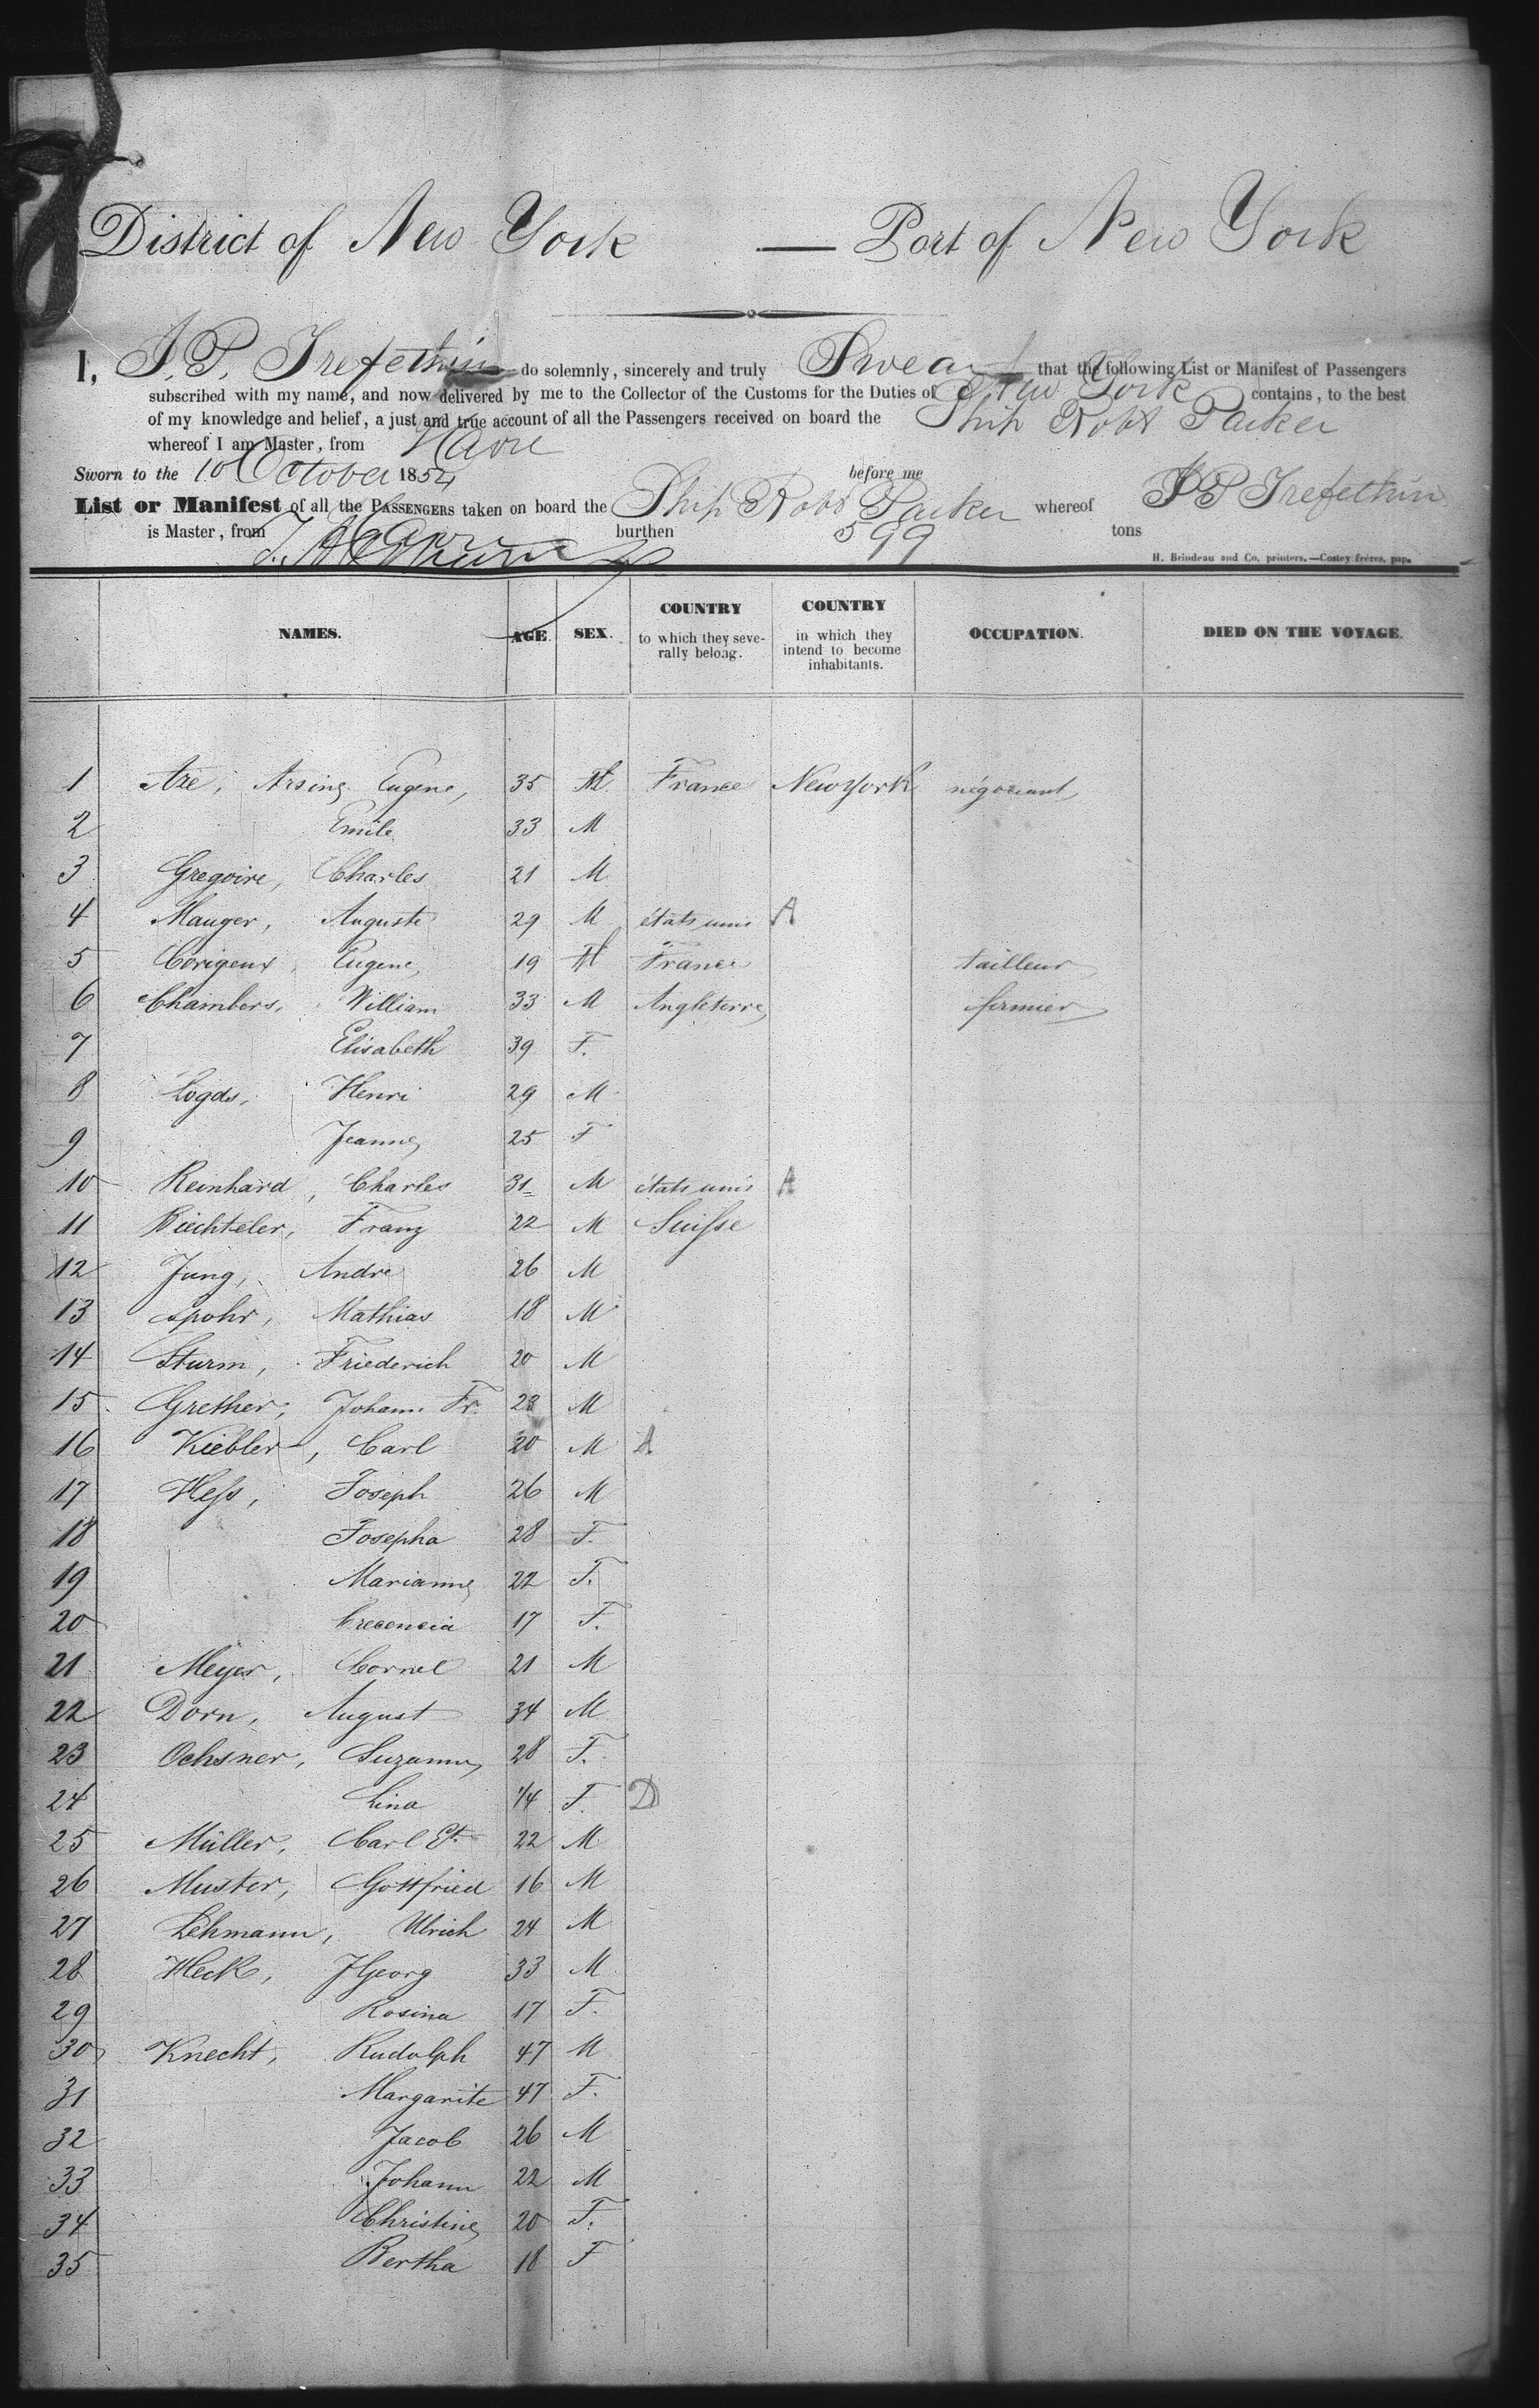 District of New York — Port of New York
I, J. P. Trefethin do solemnly, sincerely and truly Swear that the following List or Manifest of Passengers
subscribed with my name, and now delivered by me to the Collector of the Customs for the Duties of New York contains, to the best
of my knowledge and belief, a just and true account of all the Passengers received on board the Ship Robt Parker
whereof I am Master, from Havre
Sworn to the 10 October 1854 before me J P Trefethin
List or Manifest of all the PASSENGERS taken on board the Ship Robt Parker whereof
is Master, from Havre burthen 599 tons
H. Brindeau and Co, printers.—Costey frères, pap.
NAMES. AGE. SEX. COUNTRY to which they seve-rally belong. COUNTRY in which they intend to become inhabitants. OCCUPATION. DIED ON THE VOYAGE.
1 Aze, Arsine Eugene, 35 M France New York négociant
2 Emile 33 M
3 Gregoire, Charles 21 M
4 Mauger, Auguste 29 M états unis A
5 Corigeux, Eugene 19 M France tailleur
6 Chambers, William 33 M Angleterre fermier
7 Elisabeth 39 F.
8 Logds, Henri 29 M
9 Jeanne 25 F
10 Reinhard, Charles 31 M états unis A
11 Biechteler, Franz 22 M Suisse
12 Jung, Andre 26 M
13 Spohr, Mathias 18 M
14 Sturm, Friederich 20 M
15 Grether, Johann Fr. 23 M
16 Kiebler, Carl 20 M A
17 Hess, Joseph 26 M
18 Josepha 28 F.
19 Marianne 22 F.
20 Crecencia 17 F.
21 Meyer, Cornel 21 M
22 Dorn, August 34 M
23 Ochsner, Suzanne 28 F.
24 Lina 1/4 F. D
25 Müller, Carl Et. 22 M
26 Muster, Gottfried 16 M
27 Lehmann, Ulrich 24 M
28 Heck, J Georg 33 M
29 Rosina 17 F.
30 Knecht, Rudolph 47 M
31 Margarite 47 F.
32 Jacob 26 M
33 Johann 22 M
34 Christine 20 F.
35 Bertha 18 F